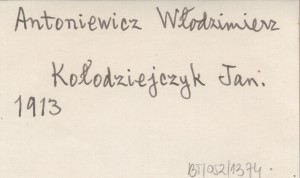 Antoniewicz Włodzimierz
Kołodziejczyk Jan.
1913
BT/052/1374.